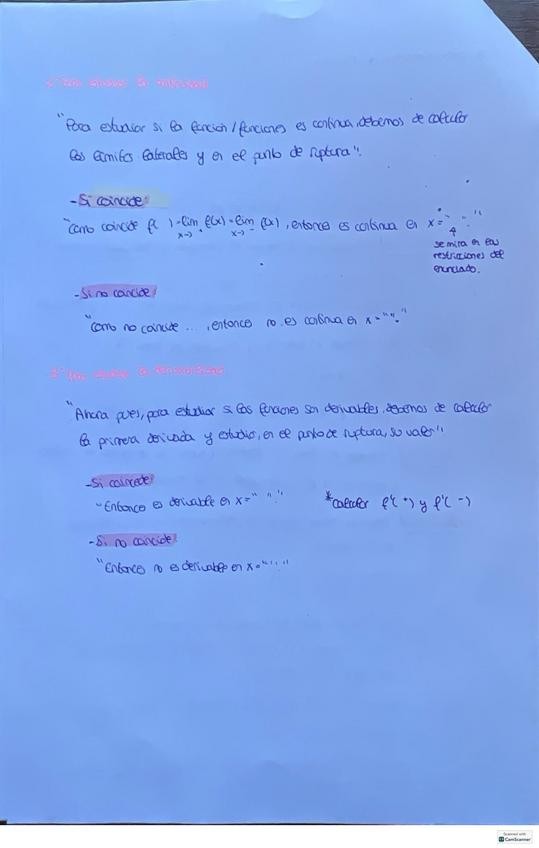 "Para estudiar si la funcion/funciones es continua, debemos de calcular
los limites laterales y en el punto de ruptura".
-Si coincide
"Como coincide f( )=lim f(x)=lim f(x), entonces es continua en x=" "."
x→ + x→ -
se mira en las
restricciones del
enunciado.
-Si no coincide
"Como no coincide ..., entonces no es continua en x=" "."
"Ahora pues, para estudiar si las funciones son derivables, debemos de calcular
la primera derivada y estudio, en el punto de ruptura, su valor"
-Si coincide
"Entonces es derivable en x=" "." *calcular f'( +) y f'( -)
-Si no coincide
"Entonces no es derivable en x=" "."
Scanned with
CamScanner